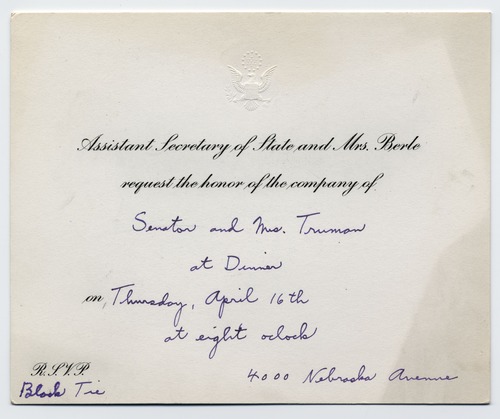 Assistant Secretary of State and Mrs. Berle
request the honor of the company of
Senator and Mrs. Truman
at Dinner
on Thursday, April 16th
at eight oclock
R.S.V.P.
Black Tie
4000 Nebraska Avenue